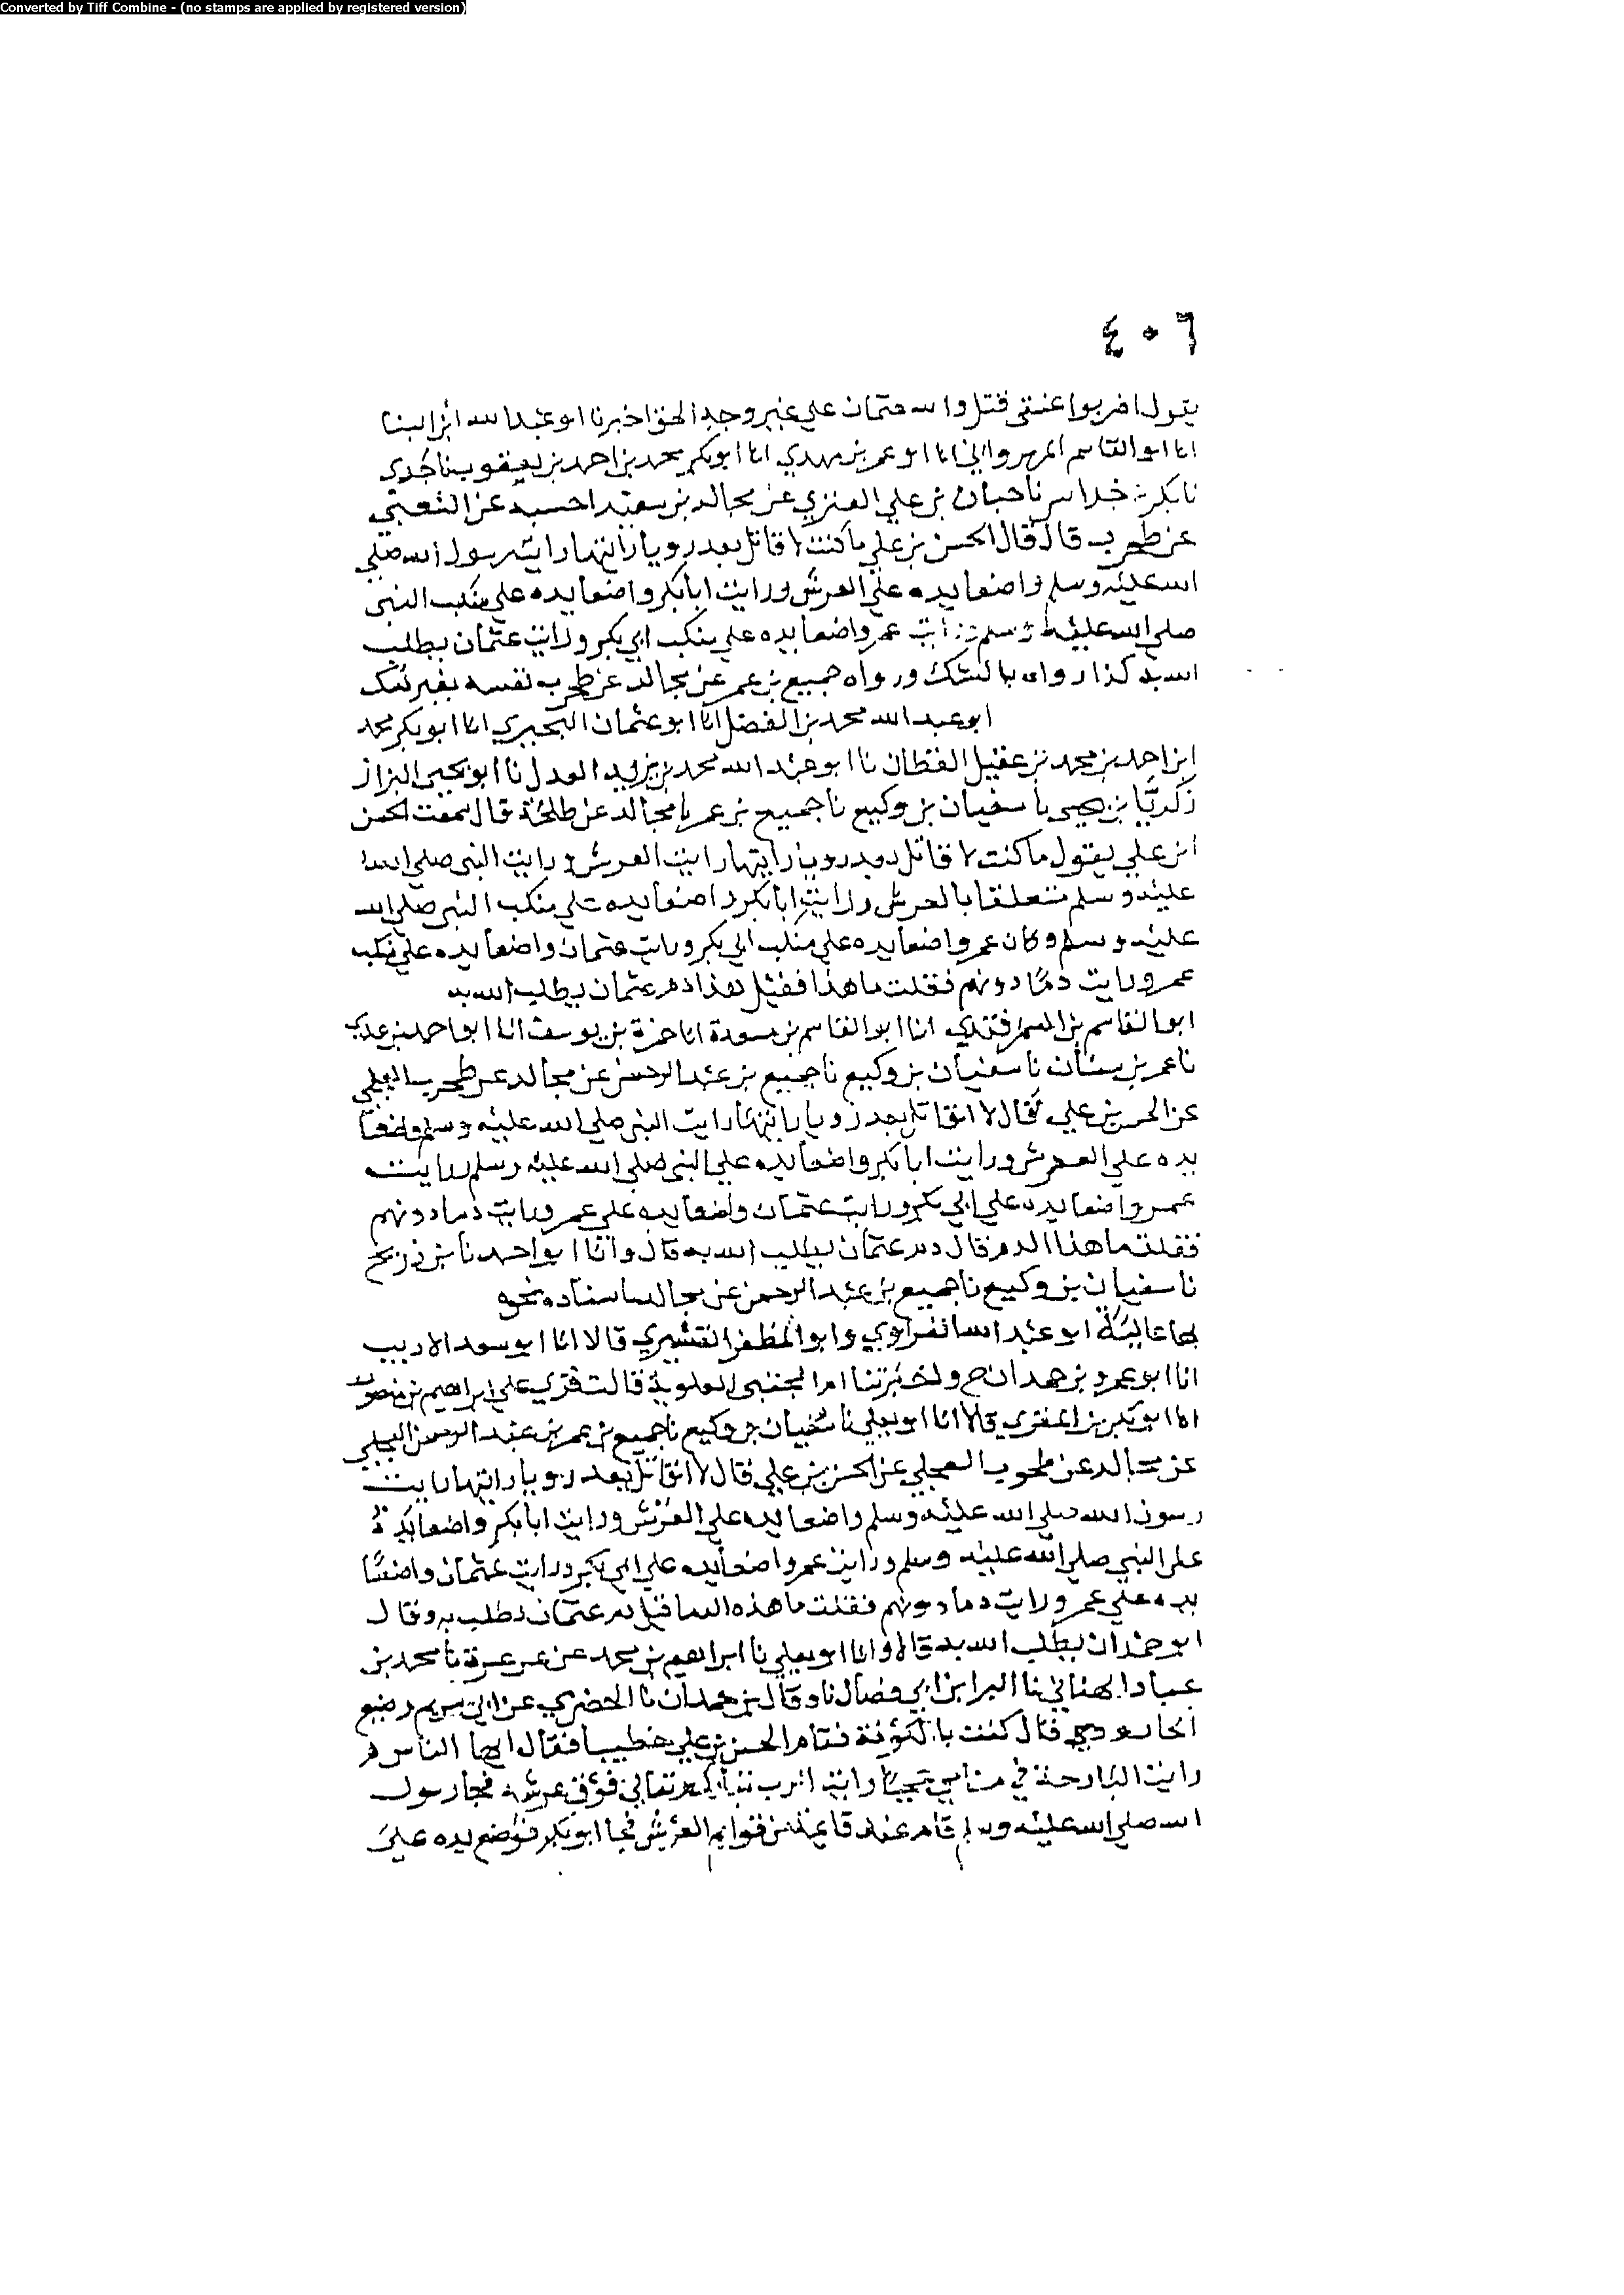 Converted by Tiff Combine - (no stamps are applied by registered version)
٤٠٦
يقول اضربوا عنقي قتل والله عثمان علي غير وجه الحق اخبرنا ابو عبد الله ابن البنا
انا ابو القاسم المهرواني انا ابو عمر بن مهدي انا ابو بكر محمد بن احمد بن يعقوب نا جدي
نا بكر خداس نا حبان بن علي العنزي عن مجالد بن سعيد احسبه عن الشعبي
عن طحرب قال قال الحسن بن علي ما كنت لاقاتل بعد رويا رايتها رايت رسول الله صلي
الله عليه وسلم واضعا يده علي العرش ورايت ابا بكر واضعا يده علي منكب النبي
صلي الله عليه وسلم ورايت عمر واضعا يده علي منكب ابي بكر ورايت عثمان يطلب
الله به كذا رواه بالشك ورواه جميع بن عمر عن مجالد عن طحرب نفسه بغير شك
ابو عبد الله محمد بن الفضل انا ابو عثمان البحيري انا ابو بكر محمد
ابن احمد بن محمد بن عقيل القطان نا ابو عبد الله محمد بن يزيد العدل نا ابو يحيي البزاز
زكريا بن يحيي نا سفيان بن وكيع نا جميع بن عمر نا مجالد عن طلحة قال سمعت الحسن
ابن علي يقول ما كنت لاقاتل بعد رويا رايتها رايت العرش ورايت النبي صلي الله
عليه وسلم متعلقا بالعرش ورايت ابا بكر واضعا يده علي منكب النبي صلي الله
عليه وسلم وكان عمر واضعا يده علي منكب ابي بكر ورايت عثمان واضعا يده علي منكب
عمر ورايت دما دونهم فقلت ما هذا فقيل هذا دم عثمان يطلب الله به
ابو القاسم بن السمرقندي انا ابو القاسم بن مسعدة انا حمزة بن يوسف انا ابو احمد بن عدي
نا عمر بن سنان نا سفيان بن وكيع نا جميع بن عبد الرحمن عن مجالد عن طحرب العجلي
عن الحسن بن علي قال لا اقاتل بعد رويا رايتها رايت النبي صلي الله عليه وسلم واضعا
يده علي العرش ورايت ابا بكر واضعا يده علي النبي صلي الله عليه وسلم ورايت
عمر واضعا يده علي ابي بكر ورايت عثمان واضعا يده علي عمر ورايت دما دونهم
فقلت ما هذا الدم قال دم عثمان يطلب الله به قال وانا ابو احمد نا بن ذريح
نا سفيان بن وكيع نا جميع بن عبد الرحمن عن مجالد باسناده نحوه
بها عالية ابو عبد الله الفراوي وابو المظفر القشيري قالا انا ابو سعد الاديب
انا ابو عمرو بن حمدان ح واخبرتنا ام المجتبي العلوية قالت قري علي ابراهيم بن منصور
انا ابو بكر بن المقري قالا انا ابو يعلي نا سفيان بن وكيع نا جميع بن عمر بن عبد الرحمن العجلي
عن مجالد عن طحرب العجلي عن الحسن بن علي قال لا اقاتل بعد رويا رايتها رايت
رسول الله صلي الله عليه وسلم واضعا يده علي العرش ورايت ابا بكر واضعا يده
علي النبي صلي الله عليه وسلم ورايت عمر واضعا يده علي ابي بكر ورايت عثمان واضعا
يده علي عمر ورايت دما دونهم فقلت ما هذه الدما قيل دم عثمان يطلب به وقال
ابو حمدان يطلب الله به قالا وانا ابو يعلي نا ابراهيم بن محمد عن عرعرة نا محمد بن
عباد الهنائي نا البرا بن ابي فضال نا وقال بن حمدان نا الحضرمي عن ابي مريم رضيع
الجارود قال كنت بالكوفة فقام الحسن بن علي خطيبا فقال ايها الناس
رايت البارحة في منامي عجبا رايت الرب تعالي فوق عرشه فجا رسول
الله صلي الله عليه وسلم قام عند قايمة من قوايم العرش فجا ابو بكر فوضع يده علي